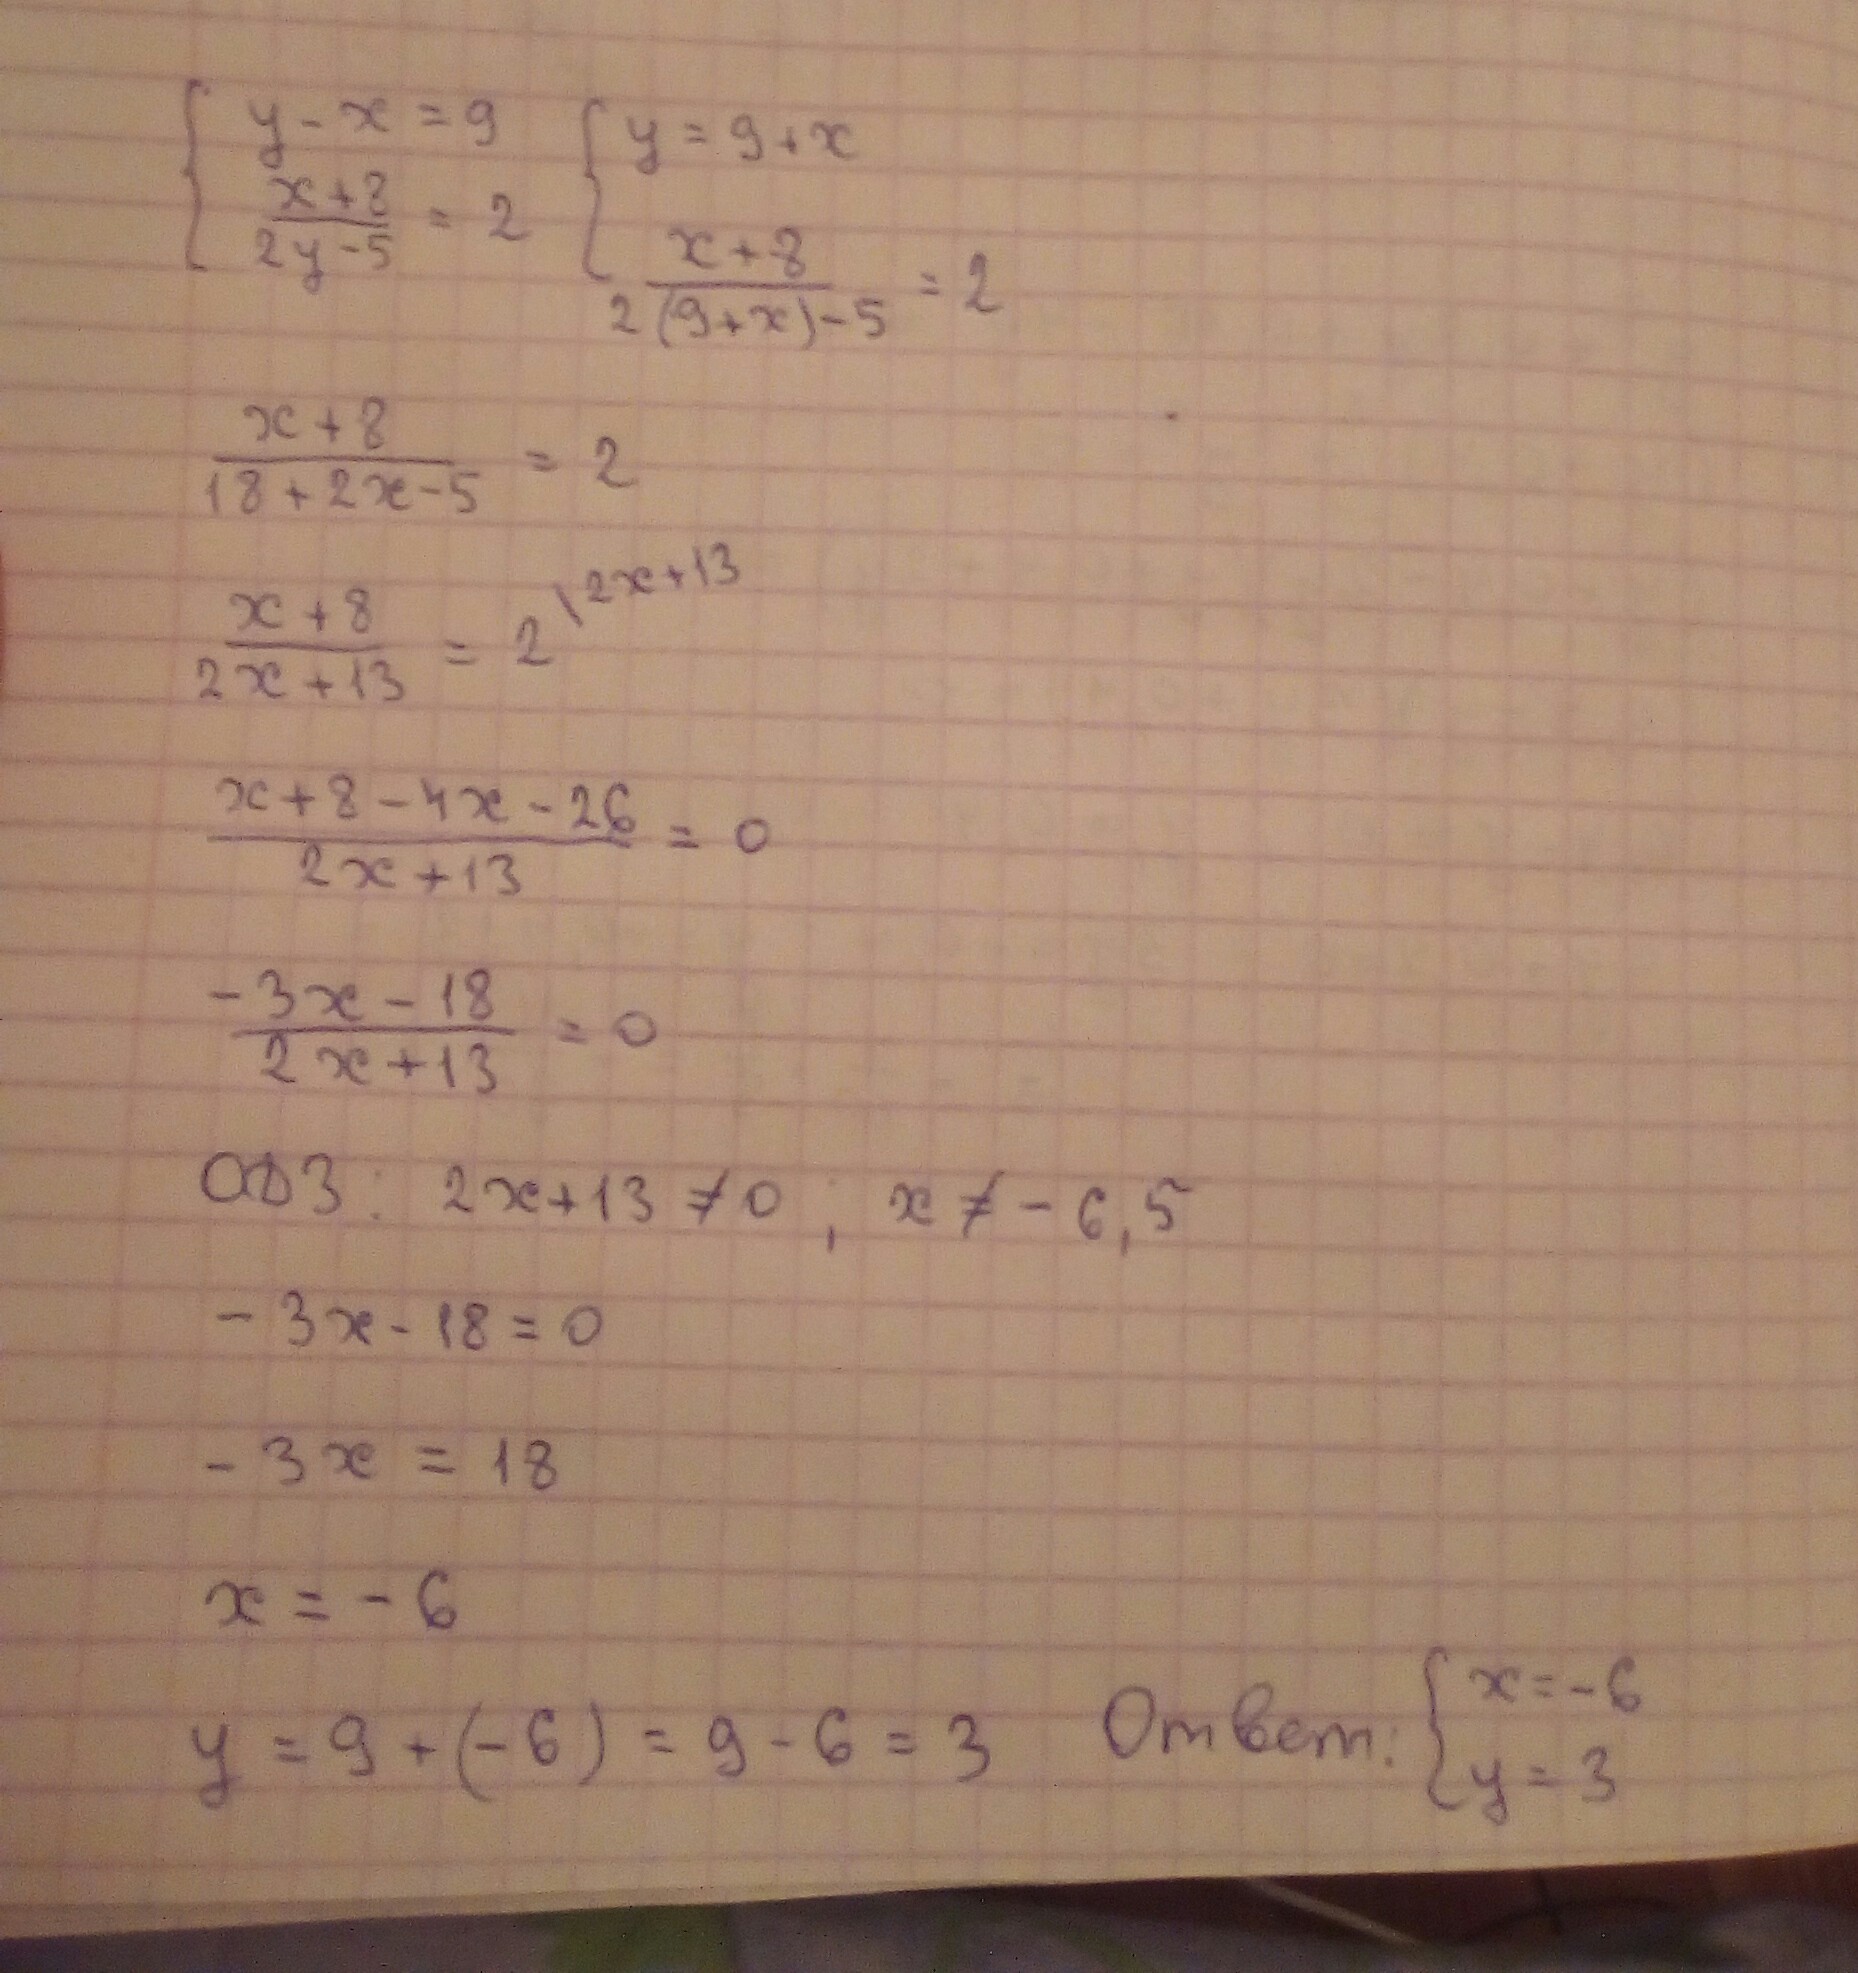 { y - x = 9 { y = 9 + x
(x+8)/(2y-5) = 2 (x+8)/(2(9+x)-5) = 2
(x+8)/(18+2x-5) = 2
(x+8)/(2x+13) = 2 \2x+13
(x+8-4x-26)/(2x+13) = 0
(-3x-18)/(2x+13) = 0
ОДЗ: 2x+13 ≠ 0 ; x ≠ - 6,5
- 3x - 18 = 0
- 3x = 18
x = - 6
y = 9 + (-6) = 9 - 6 = 3 Ответ: { x = -6
y = 3